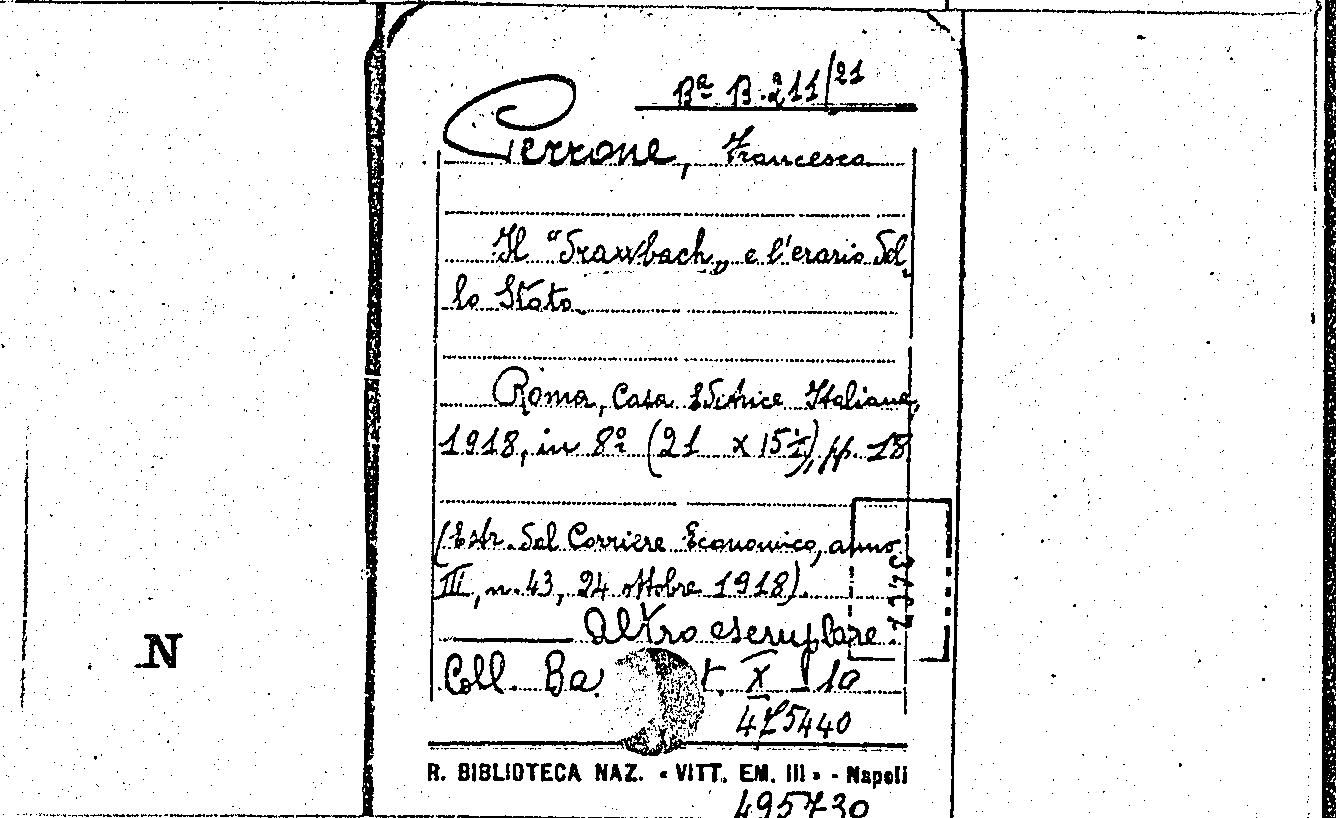 Bª B. 211/21
Perrone, Francesco
Il "Drawbach„ e l'erario del-
lo Stato.
Roma, Casa Editrice Italiana,
1918, in 8º (21 x 15½), pp. 18
(Estr. dal Corriere Economico, anno
III, n. 43, 24 ottobre 1918).
Altro esemplare:
Coll. Ba t. X 10
475440
R. BIBLIOTECA NAZ. « VITT. EM. III » - Napoli
495730
N